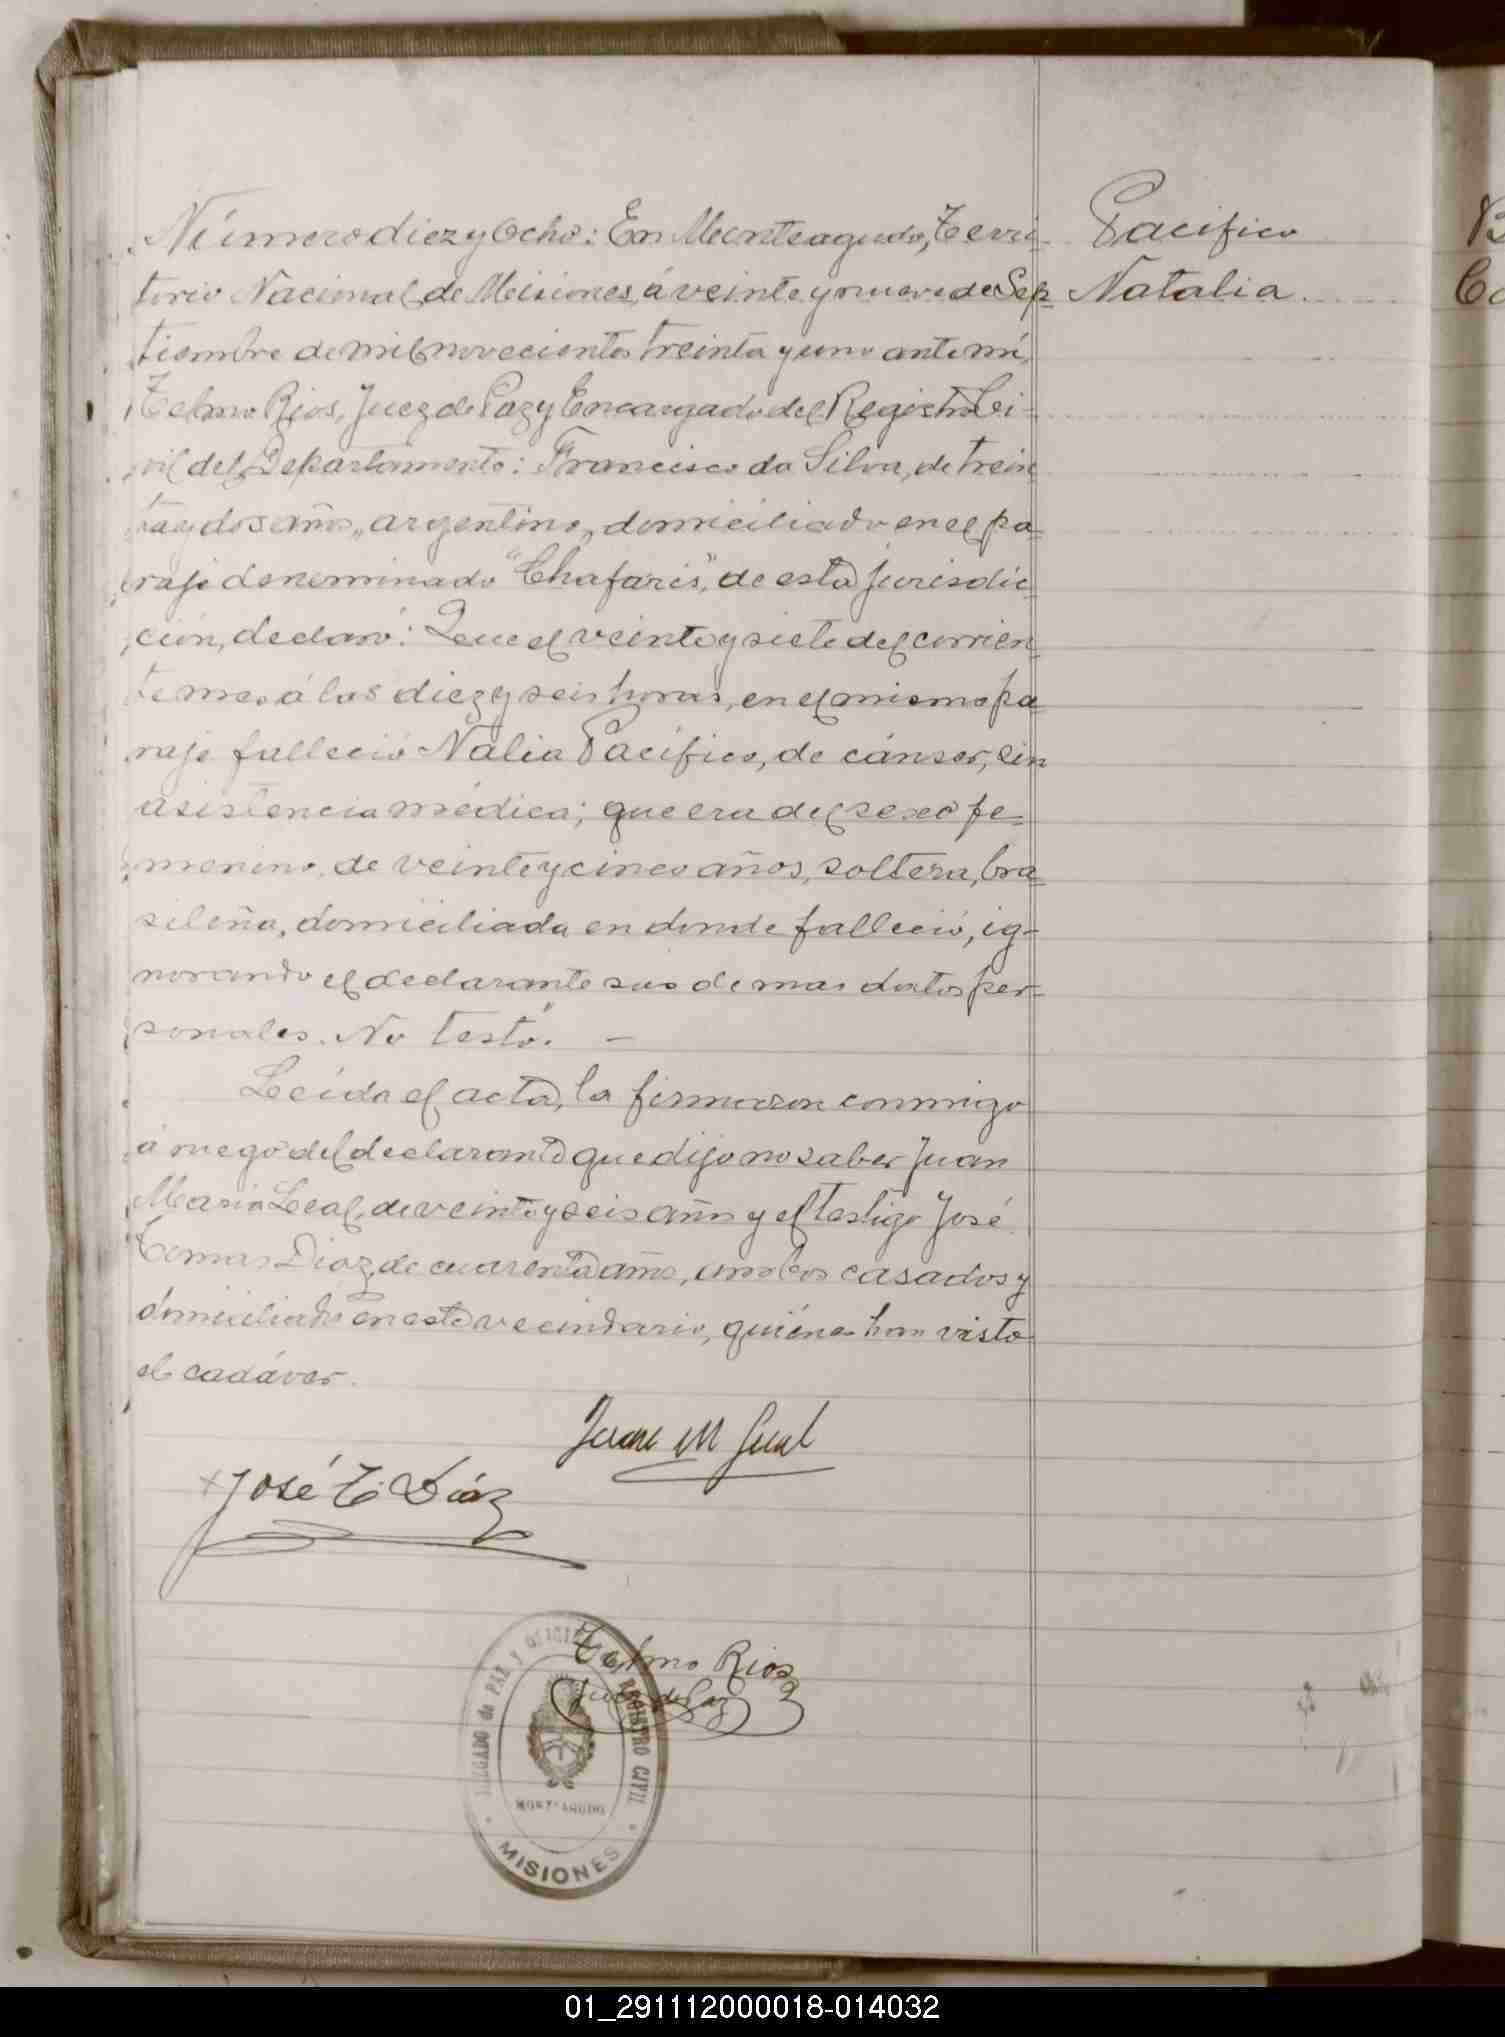 Pacífico
Natalia
Número diez y Ocho: En Monteagudo, Terri-
torio Nacional de Misiones, á veinte y nueve de Sep-
tiembre de mil novecientos treinta y uno ante mí,
Telmo Rios, Juez de Paz y Encargado del Registro Ci-
vil del Departamento: Francisco da Silva, de trein-
ta y dos años, argentino, domiciliado en el pa-
raje denominado "Chafaris", de esta jurisdic-
ción, declaró: Que el veinte y siete del corrien-
te mes á las diez y seis horas, en el mismo pa-
raje falleció Nalia Pacífico, de cánser, sin
asistencia médica; que era del sexo fe-
menino, de veinte y cinco años, soltera, bra-
sileña, domiciliada en donde falleció, ig-
norando el declarante sus demas datos per-
sonales. No testó. —
Leída el acta, la firmaron conmigo
á ruego del declarante que dijo no saber Juan
Maria Leal, de veinte y seis años y el testigo José
Tomas Diaz, de cuarenta años, ambos casados y
domiciliados en este vecindario, quiénes han visto
el cadáver.
Juan M Leal
José T. Díaz
Telmo Rios
Juez de Paz
JUZGADO de PAZ y OFICINA del REGISTRO CIVIL
MONTEAGUDO
MISIONES
B
Co
01_291112000018-014032